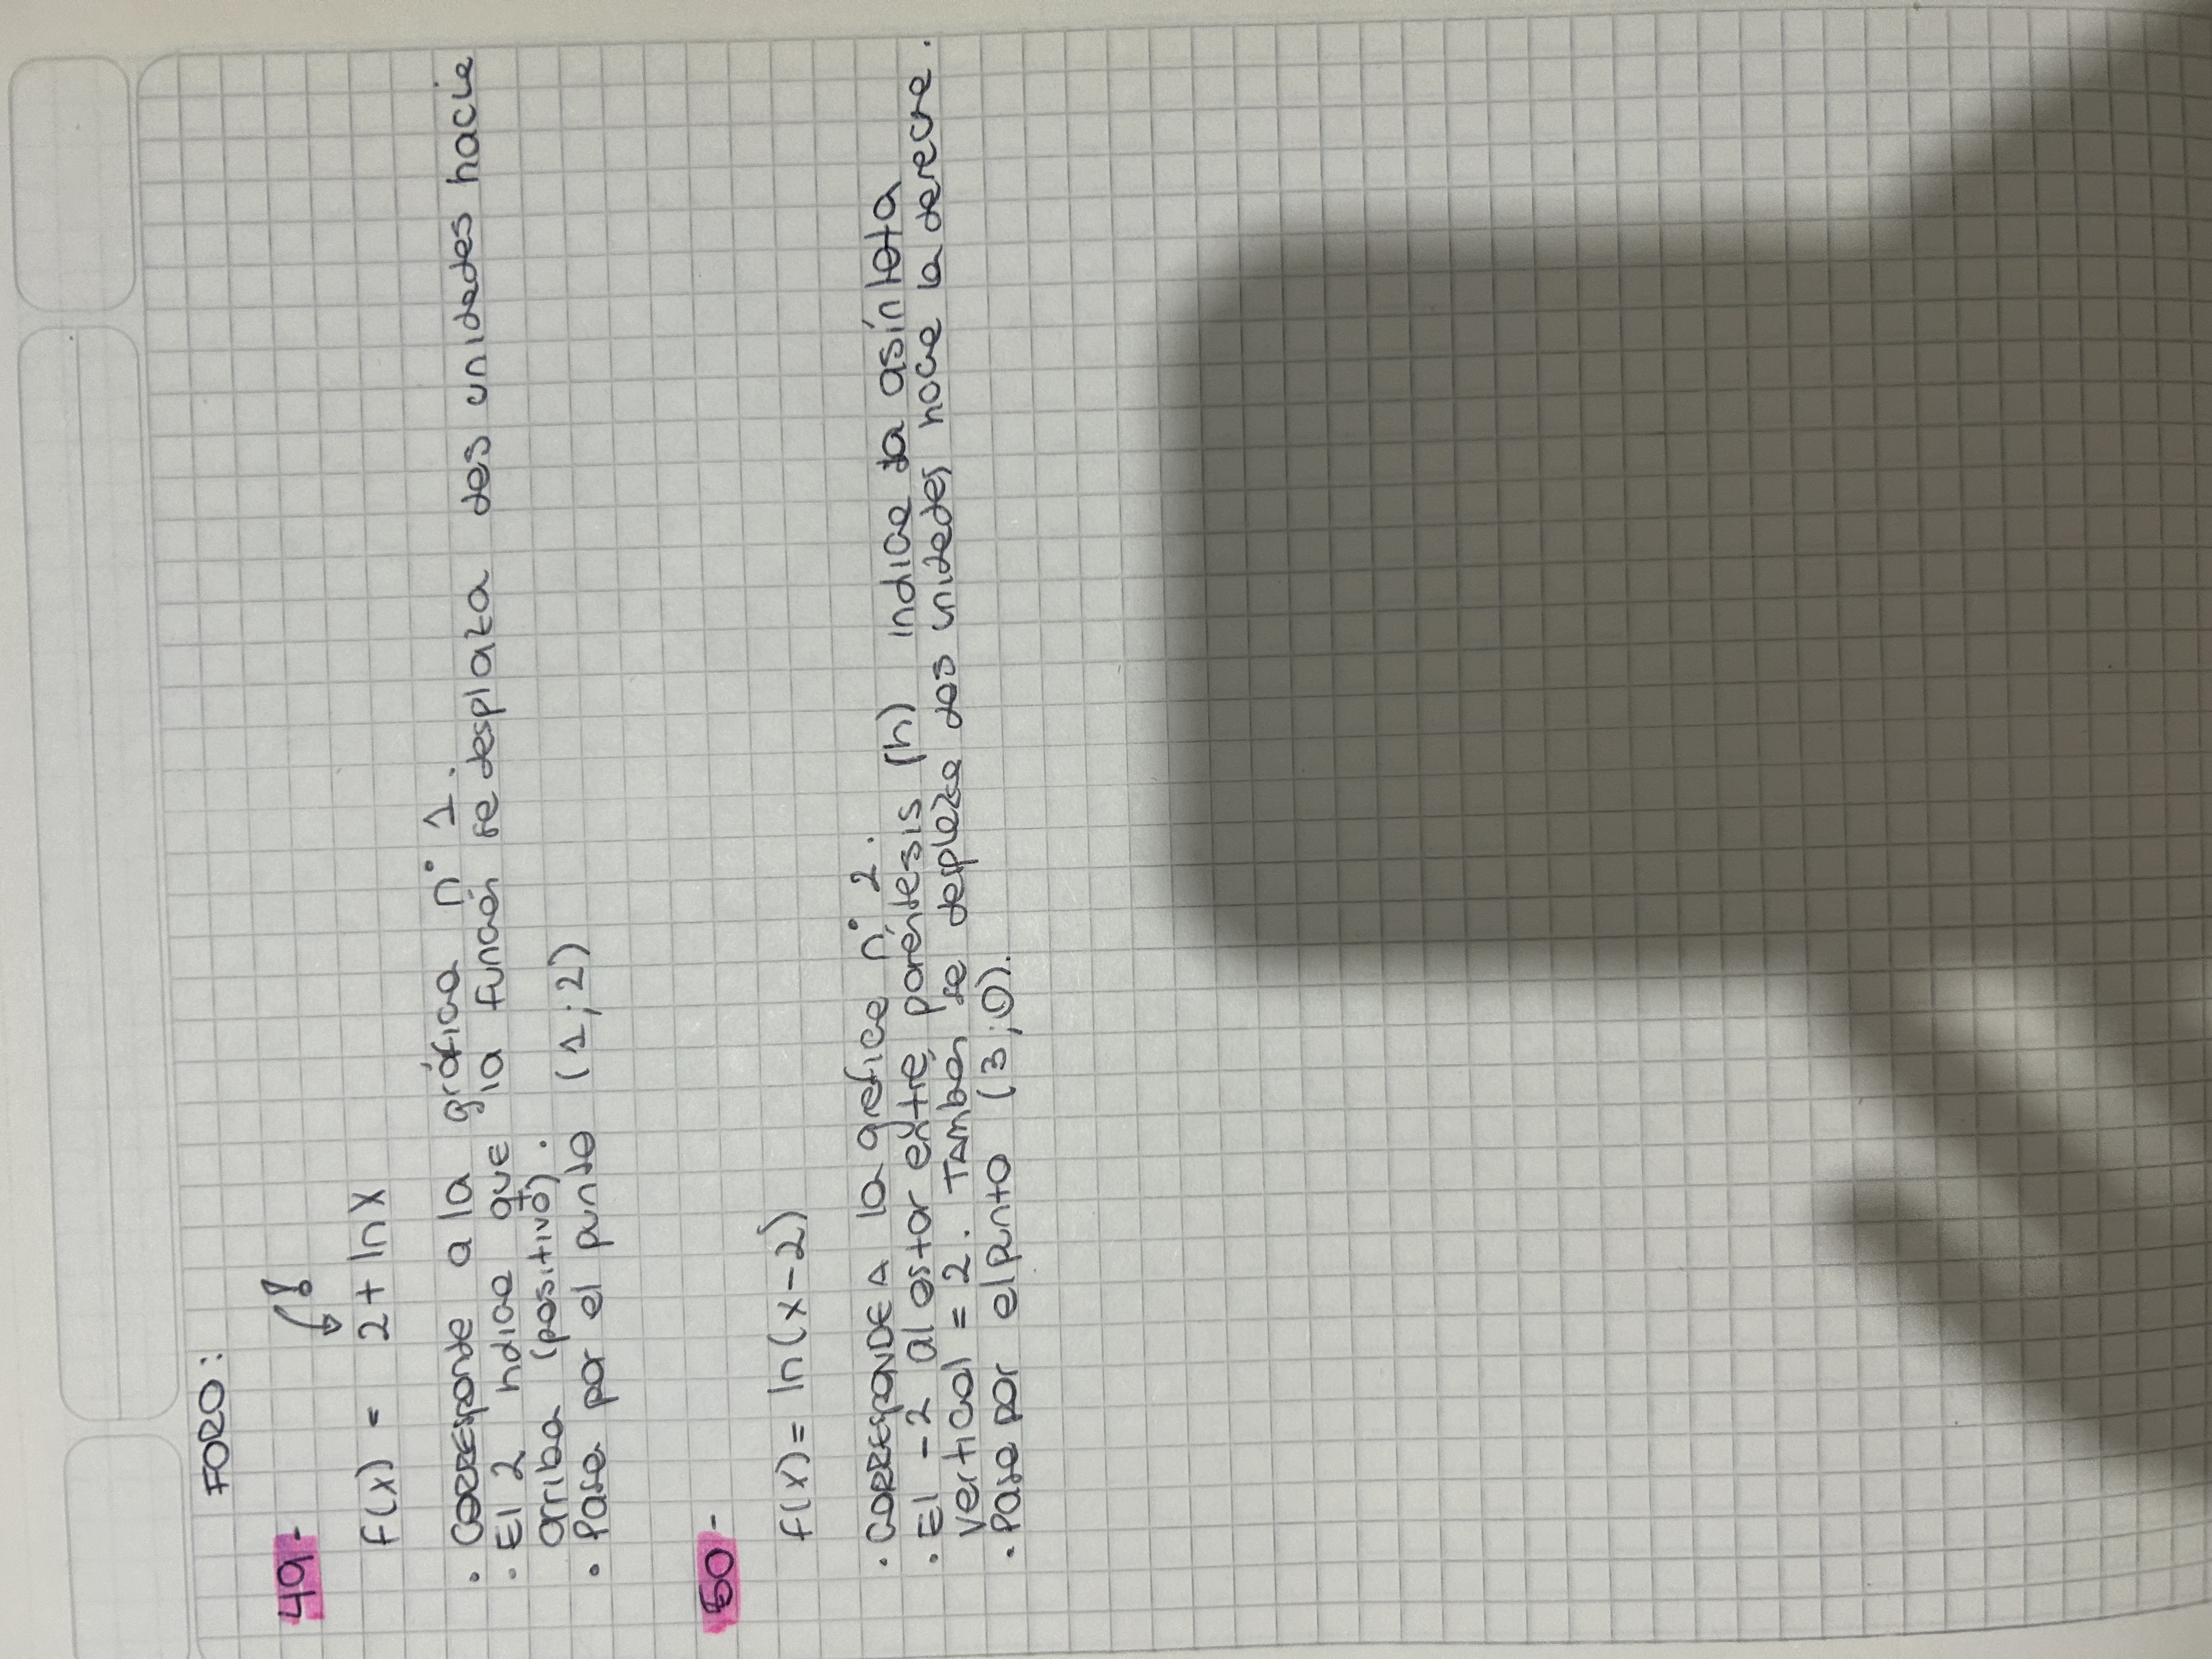 FORO:
49-
f(x) = 2 + ln x
• Corresponde a la gráfica n° 1.
• El 2 indica que la función se desplaza dos unidades hacia
arriba (positivo).
+
• Pasa por el punto (1;2)
50-
f(x) = ln(x-2)
• CORRESPONDE A la gráfica n° 2.
• El -2 al estar entre paréntesis (h) indica la asíntota
vertical = 2. También se desplaza dos unidades hacia la derecha.
• Pasa por el punto (3;0).